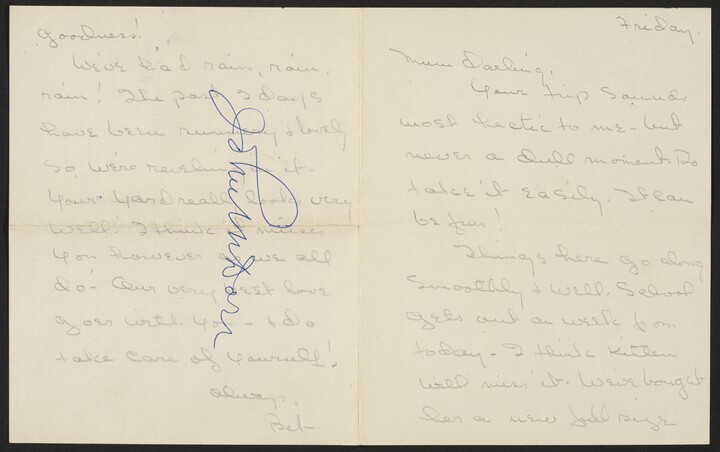 Friday.
Mum Darling,
Your trip sounds
most hectic to me - but
never a dull moment. Do
take it easily. It can
be fun!
Things here go along
smoothly & well. School
gets out a week from
today - I think Kitten
will miss it. We've bought
her a new full size
goodness!
We've had rain, rain,
rain! The past 2 days
have been sunny & lovely
so we're reveling in it.
Your yard really looks very
well. I think it misses
you however as we all
do - Our very best love
goes with you - & do
take care of yourself!
always,
Bet-